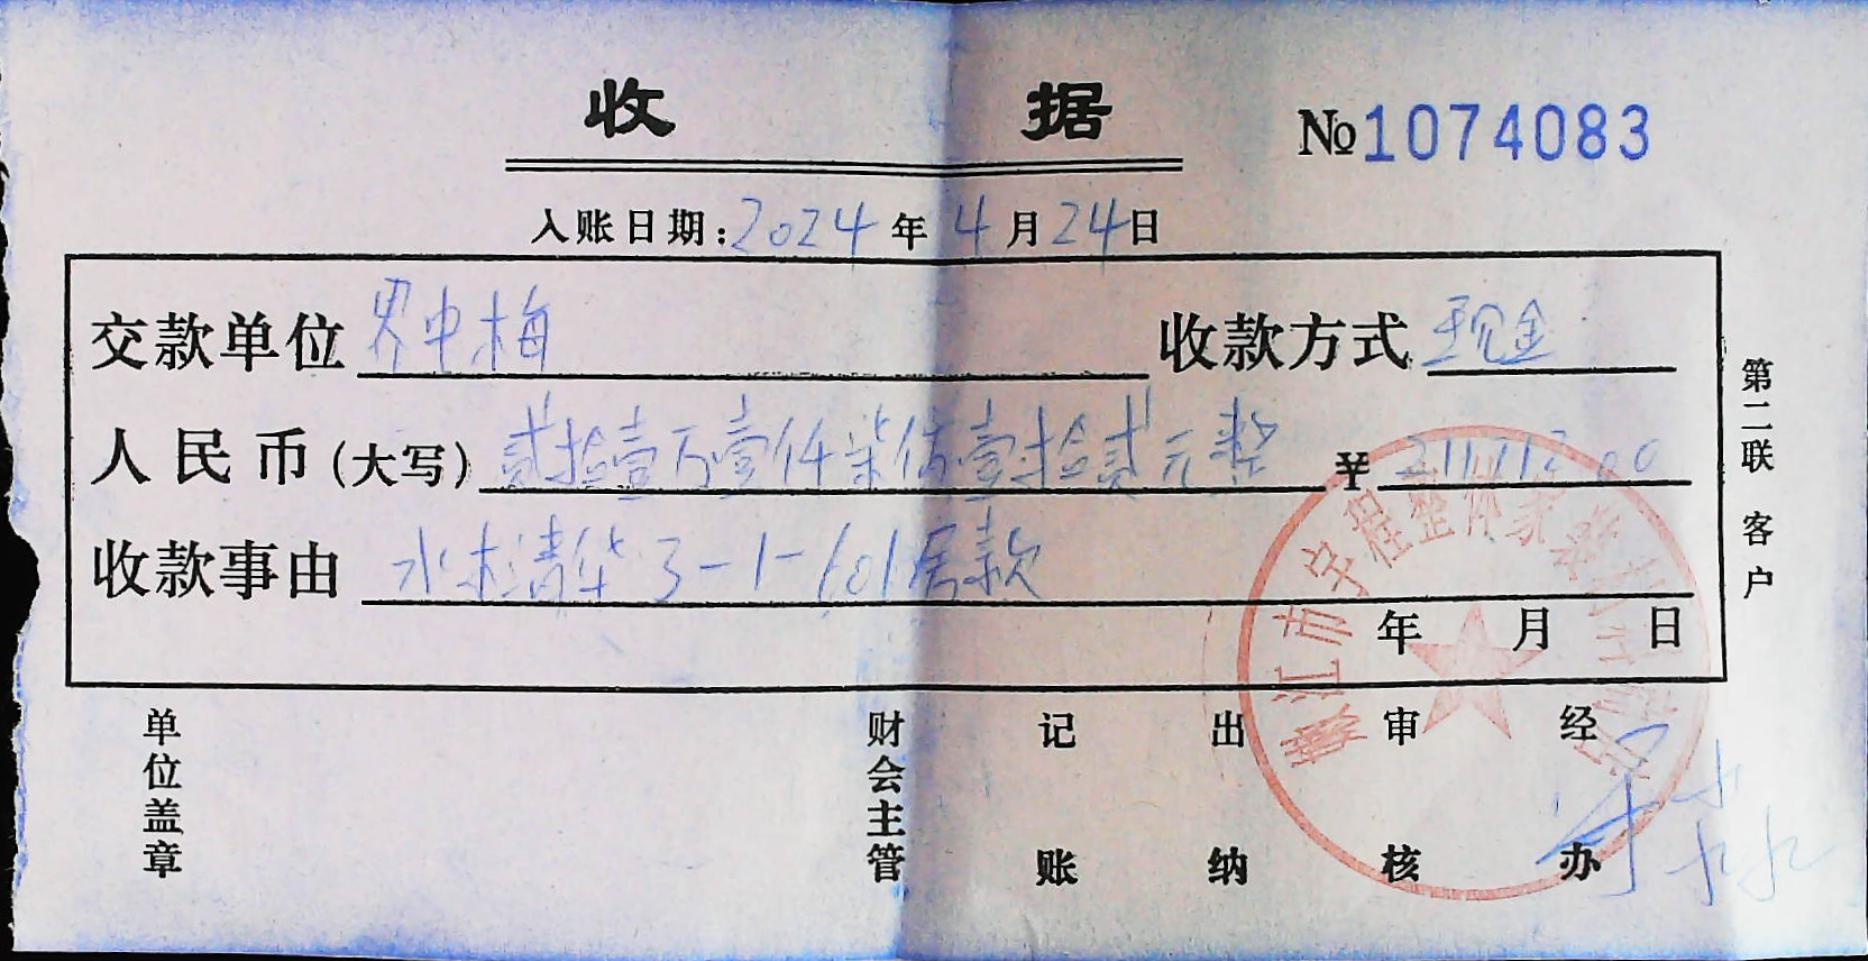 收 据
№1074083
入账日期:2024年4月24日
交款单位 界中梅 收款方式 现金
人民币(大写) 贰拾壹万壹仟柒佰壹拾贰元整 ¥ 211712.00
收款事由 水木清华3-1-1601房款
年 月 日
第二联 客户
单位盖章 财会主管 记账 出纳 审核 经办